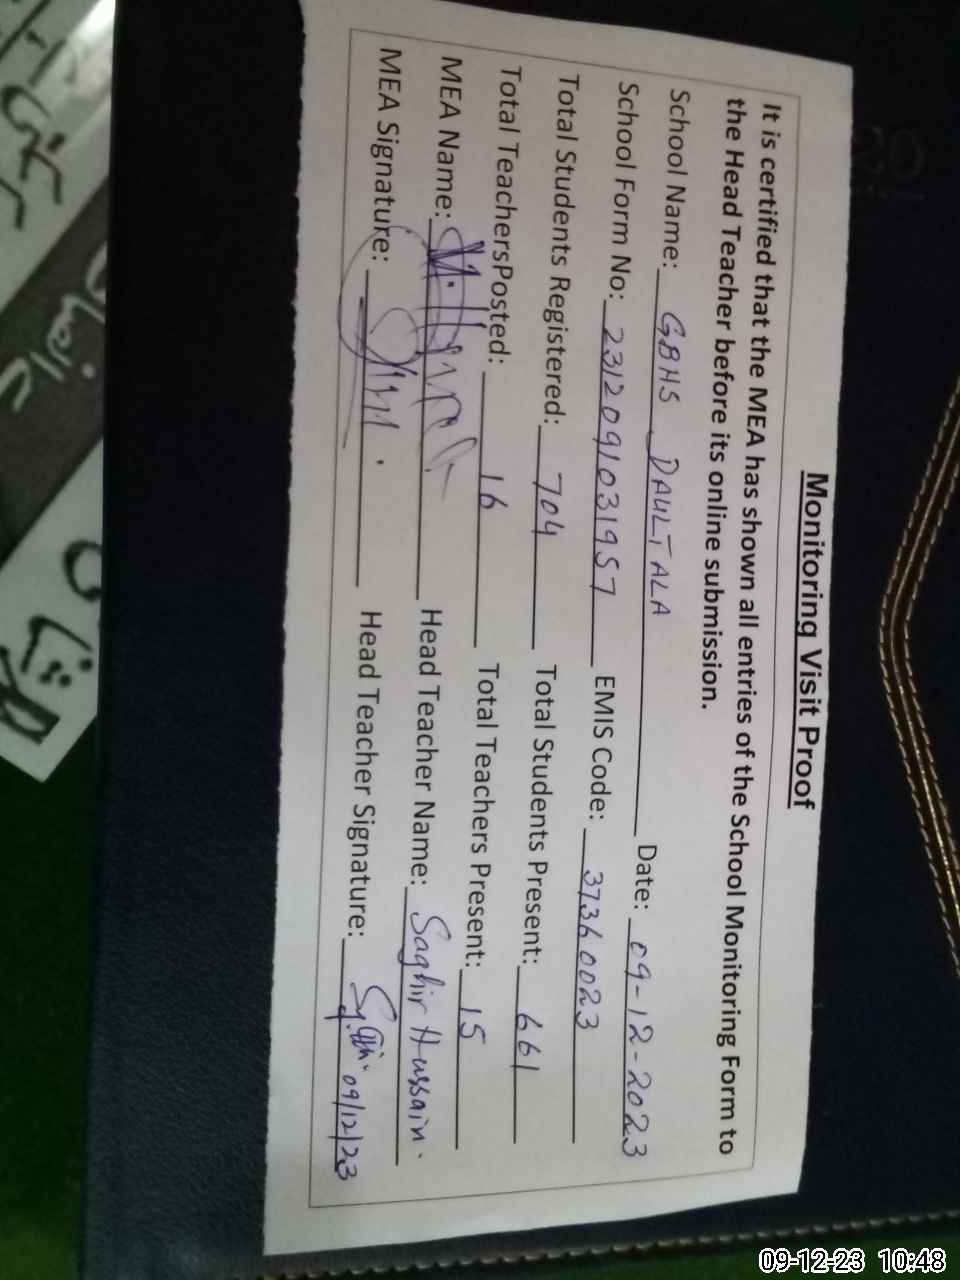 Monitoring Visit Proof
It is certified that the MEA has shown all entries of the School Monitoring Form to
the Head Teacher before its online submission.
School Name: GBHS DAULTALA Date: 09-12-2023
School Form No: 2312091031957 EMIS Code: 37360023
Total Students Registered: 704 Total Students Present: 661
Total TeachersPosted: 16 Total Teachers Present: 15
MEA Name: Head Teacher Name: Saghir Hussain.
MEA Signature: Head Teacher Signature: 09/12/23
09-12-23 10:48